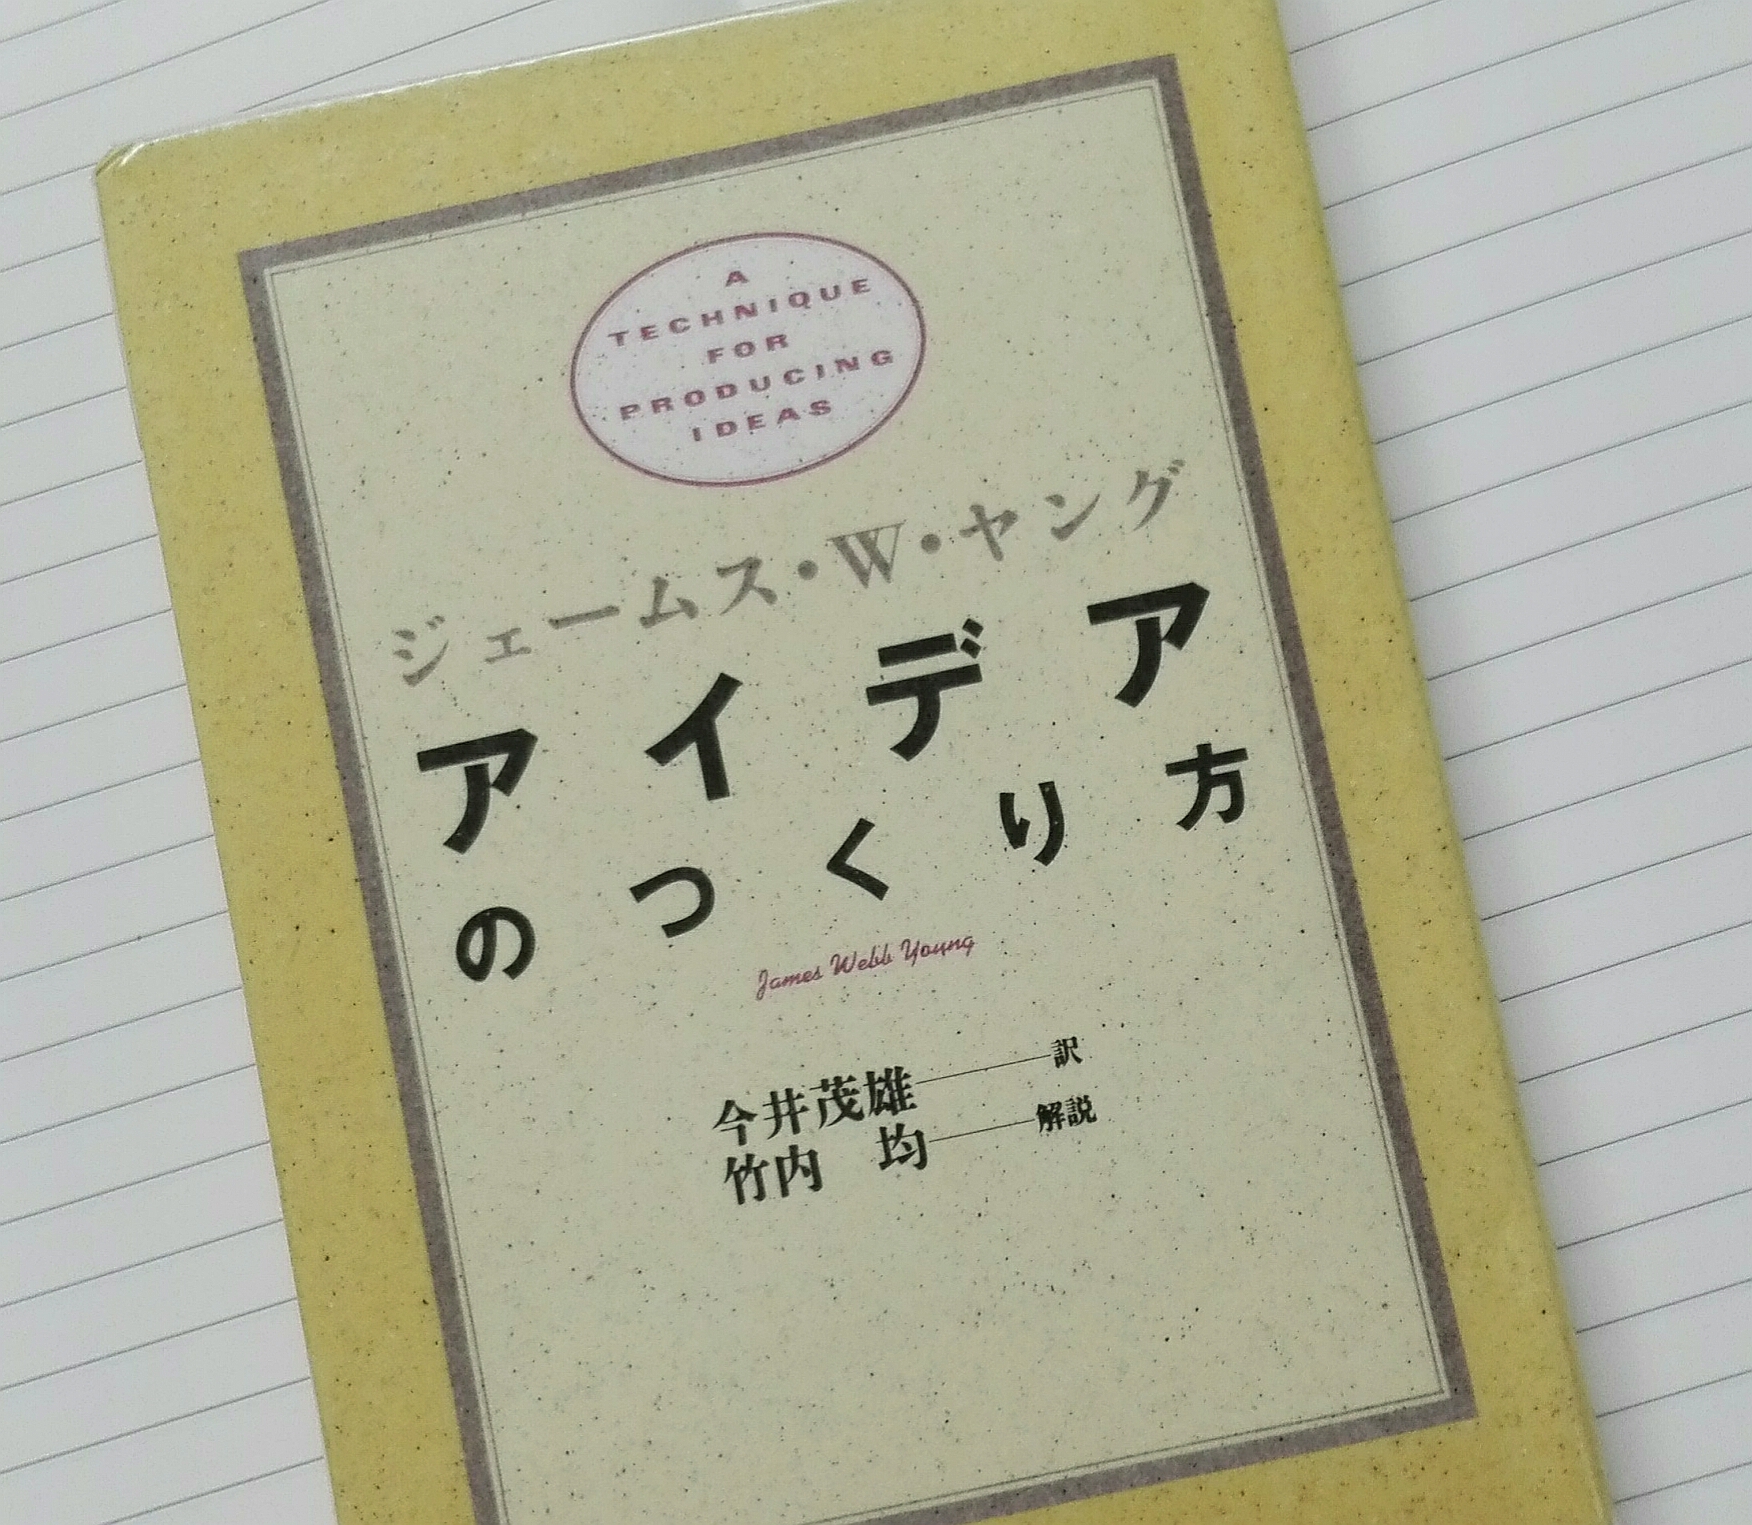 A
TECHNIQUE
FOR
PRODUCING
IDEAS
ジェームス・W・ヤング
アイデア
のつくり方
James Webb Young
今井茂雄――訳
竹内　均――解説